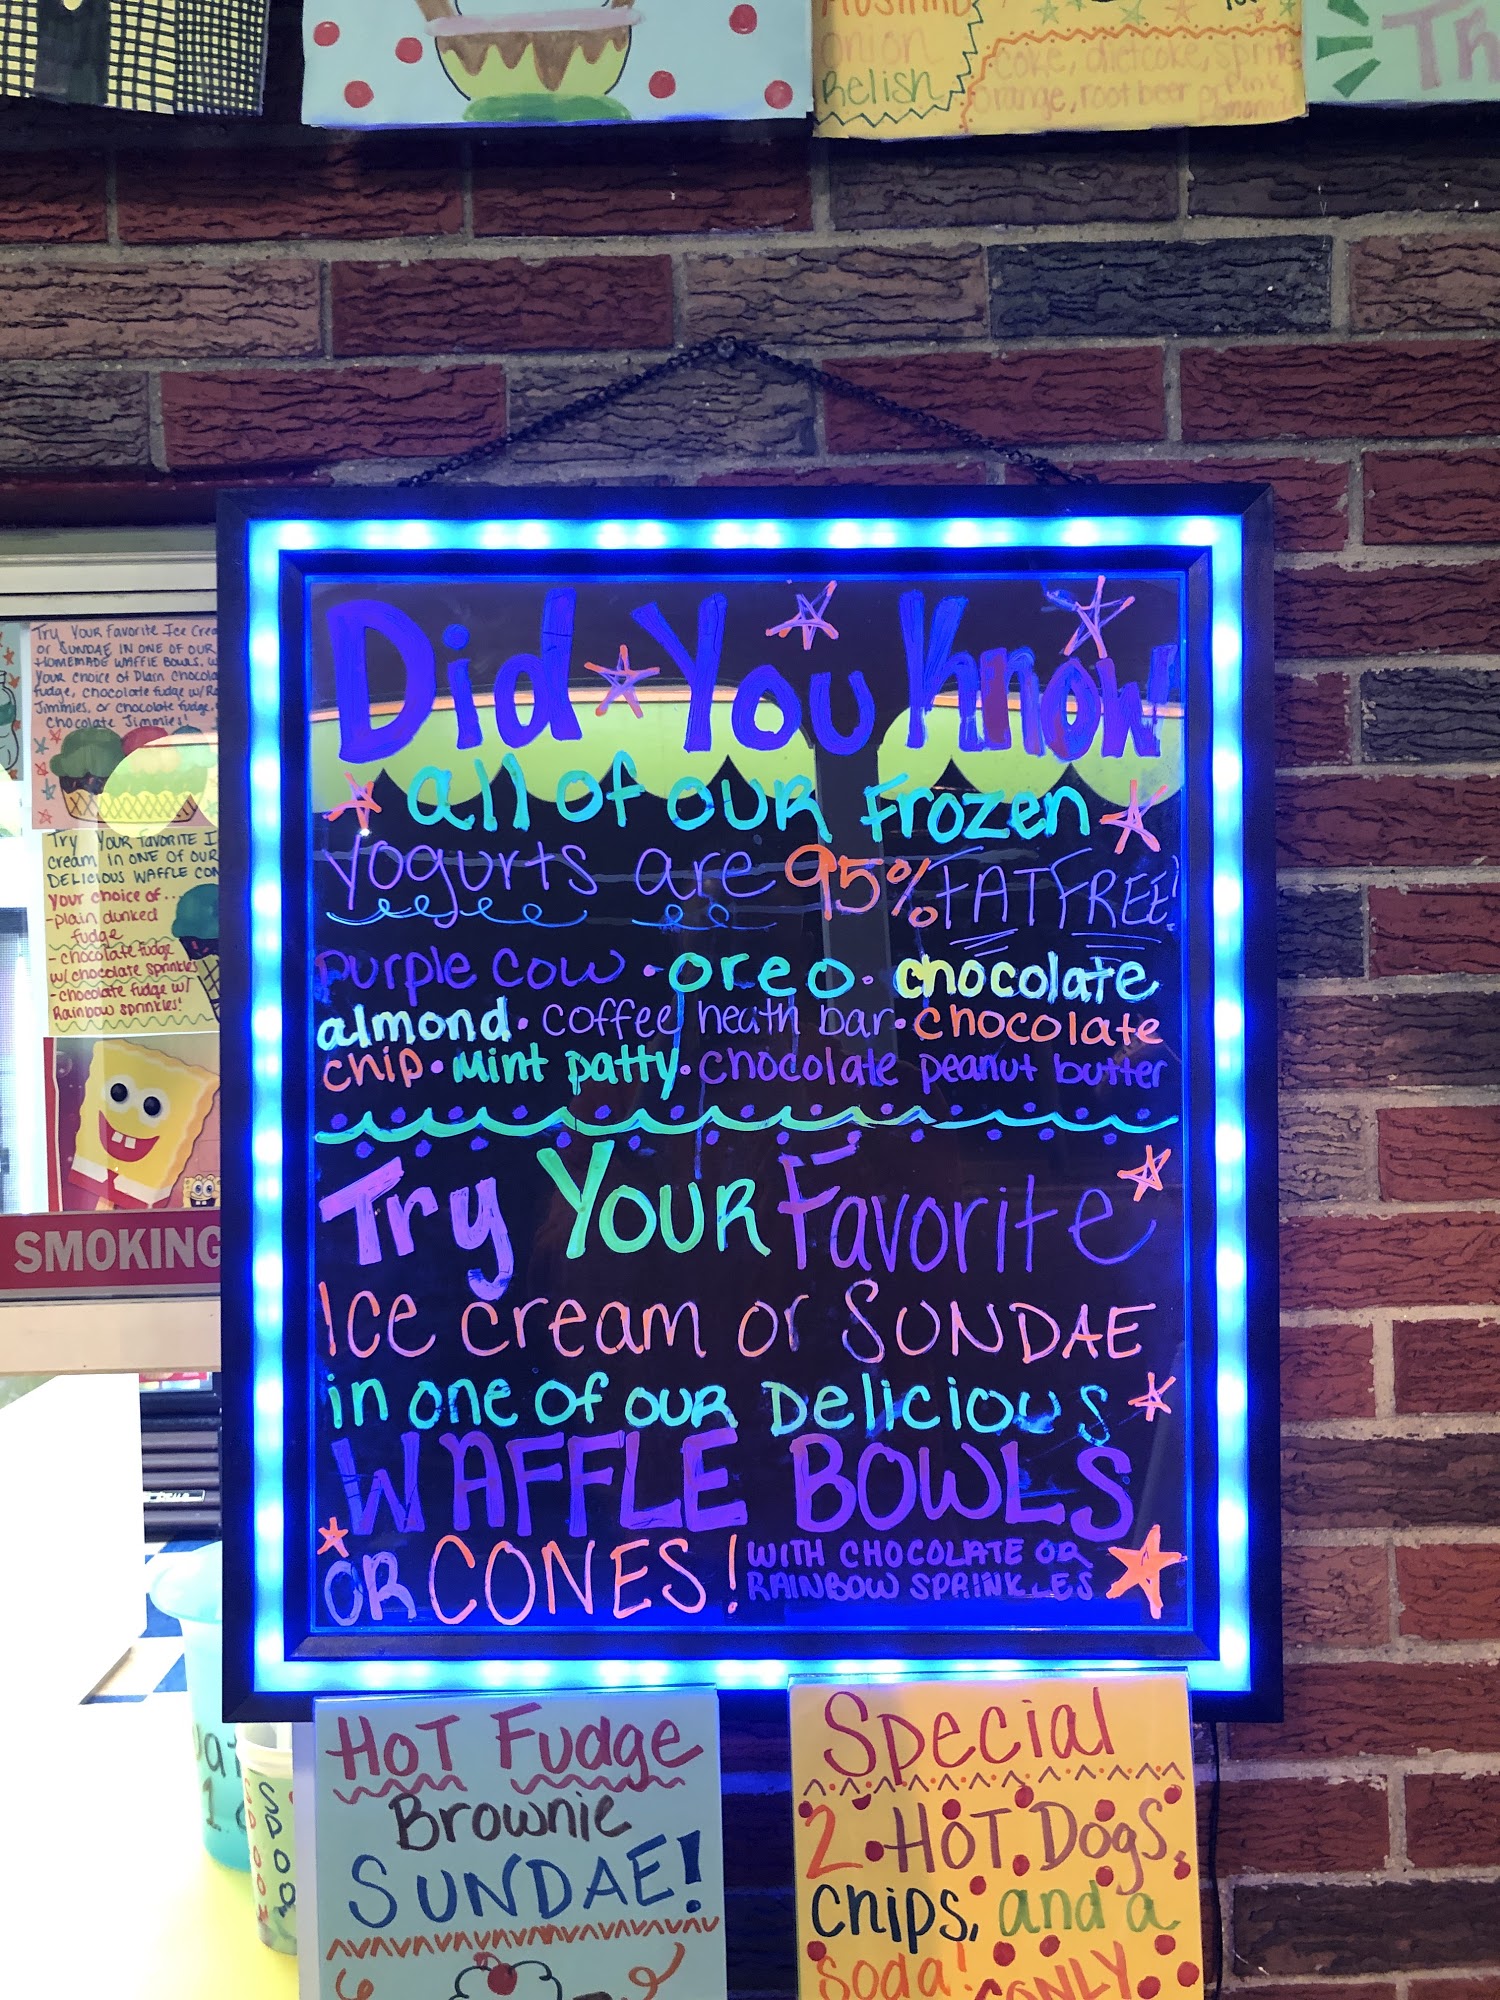 onion
Relish
coke, dietcoke, sprite
orange, root beer or Pink
Lemonade
Th
Try Your Favorite Ice Crea
or SUNDAE IN ONE OF OUR
HOMEMADE WAFFLE BOWLS, w
Your choice of Plain Chocola
fudge, chocolate fudge w/Ra
Jimmies, or chocolate fudge
chocolate Jimmies!
Try Your favorite I
cream in ONE OF OUR
DELICIOUS WAFFLE CON
Your choice of...
-plain dunked
fudge
- chocolate fudge
w/chocolate sprinkles
- chocolate fudge w/
Rainbow sprinkles!
SMOKING
Did You Know
all of our Frozen
yogurts are 95% FAT FREE!
purple cow · oreo · chocolate
almond · coffee heath bar · chocolate
chip · mint patty · chocolate peanut butter
Try Your Favorite
Ice cream or SUNDAE
in one of our Delicious
WAFFLE BOWLS
OR CONES! WITH CHOCOLATE OR
RAINBOW SPRINKLES
Hot Fudge
Brownie
SUNDAE!
Special
2 HOT Dogs,
chips, and a
soda!
ONLY